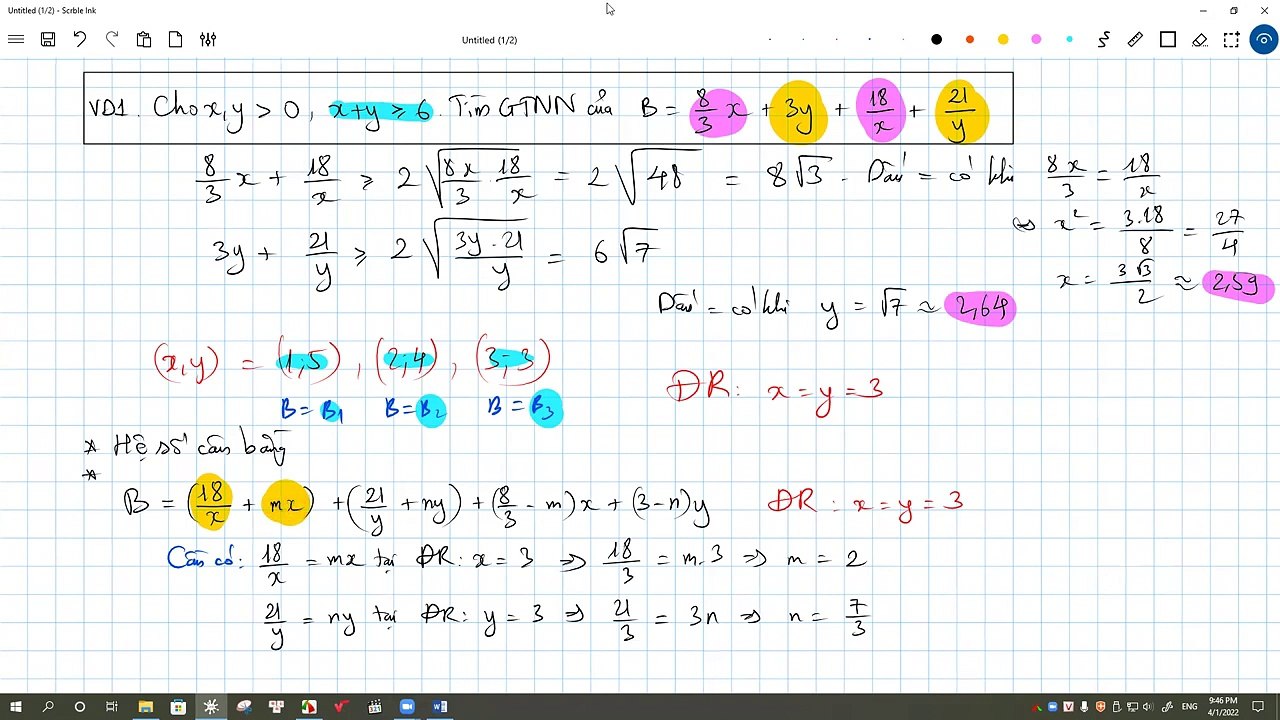 Untitled (1/2) - Scrble Ink
Untitled (1/2)
VD1. Cho x,y > 0, x+y ≥ 6. Tìm GTNN của B = 8/3 x + 3y + 18/x + 21/y
8/3 x + 18/x ≥ 2√(8x/3 · 18/x) = 2√48 = 8√3. Dấu = có khi 8x/3 = 18/x
⇔ x² = 3.18/8 = 27/4
3y + 21/y ≥ 2√(3y·21/y) = 6√7
x = 3√3/2 ≈ 2,59
Dấu = có khi y = √7 ≈ 2,64
(x,y) = (1;5), (2;4), (3;3)
ĐR: x=y=3
B=B1 B=B2 B=B3
* Hệ số cân bằng
*
B = (18/x + mx) + (21/y + ny) + (8/3 - m)x + (3-n)y ĐR: x=y=3
Cần có: 18/x = mx tại ĐR: x=3 ⇒ 18/3 = m.3 ⇒ m = 2
21/y = ny tại ĐR: y=3 ⇒ 21/3 = 3n ⇒ n = 7/3
9:46 PM
ENG
4/1/2022